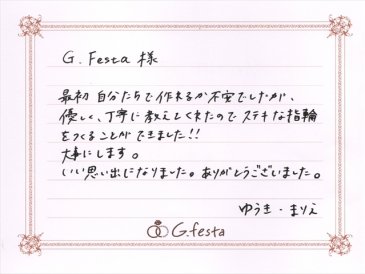 G.Festa 様
最初 自分たちで作れるか不安でしたが、
優しく、丁寧に教えてくれたので ステキな指輪
をつくることができました!!
大事にします。
いい思い出になりました。ありがとうございました。
ゆうき・まりえ
G.festa